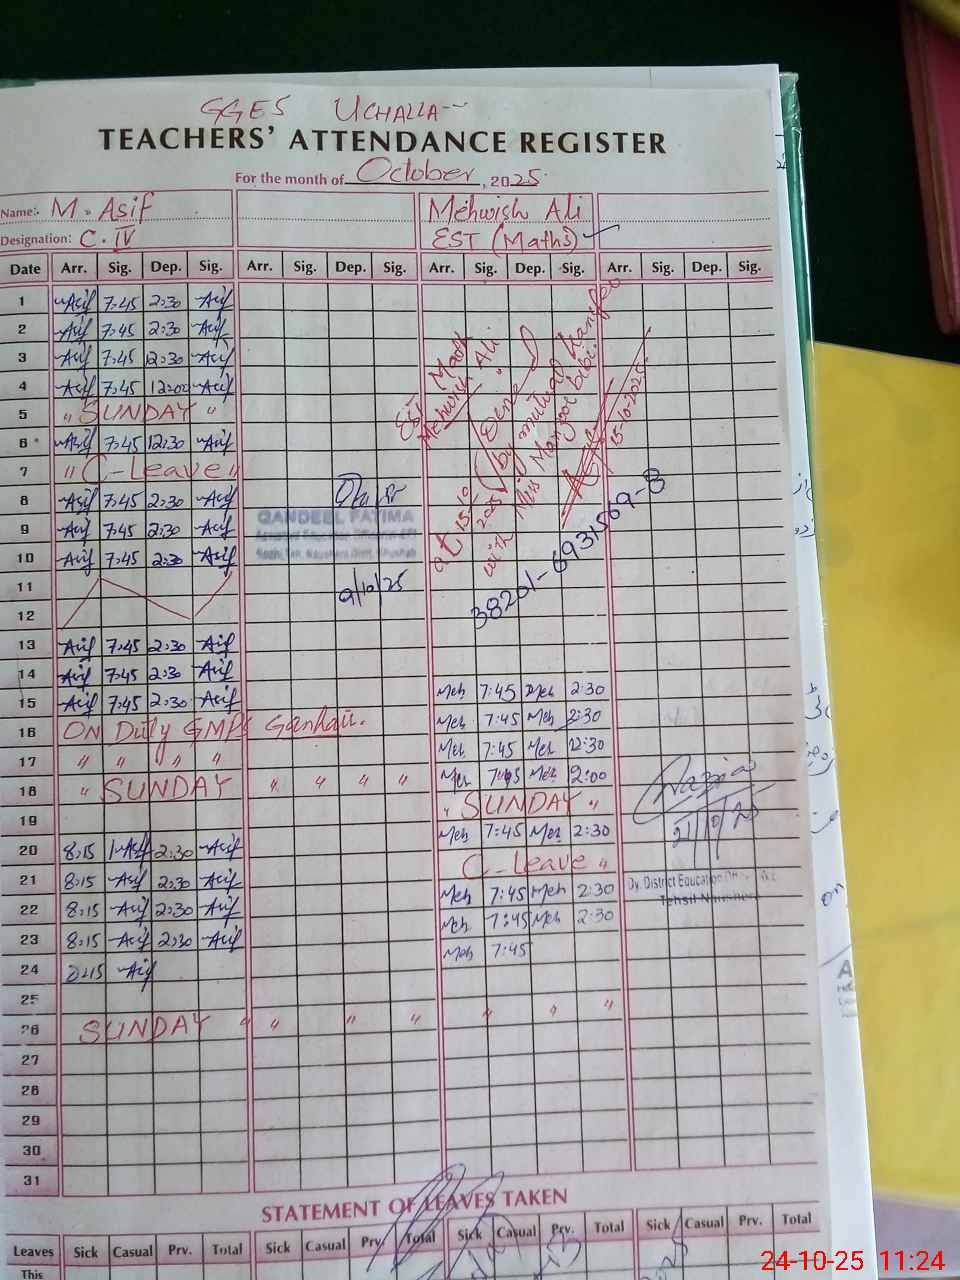 GGES UCHALLA--
TEACHERS' ATTENDANCE REGISTER
For the month of October, 2025
Name:- M. Asif Mehwish Ali
Designation: C. IV EST (Maths)
Date Arr. Sig. Dep. Sig. Arr. Sig. Dep. Sig. Arr. Sig. Dep. Sig. Arr. Sig. Dep. Sig.
1 Asif 7:45 2:30 Asif
2 Asif 7:45 2:30 Asif
3 Asif 7:45 12:30 Asif
4 Asif 7:45 12:00 Asif
5 " SUNDAY "
6 Asif 7:45 12:30 Asif
7 " C-Leave "
8 Asif 7:45 2:30 Asif
9 Asif 7:45 2:30 Asif
10 Asif 7:45 2:30 Asif
11
12
13 Asif 7:45 2:30 Asif
14 Asif 7:45 2:30 Asif
15 Asif 7:45 2:30 Asif Meh 7:45 Meh 2:30
16 ON Duty GMPS Meh 7:45 Meh 2:30
17 " " " " Meh 7:45 12:30
18 " SUNDAY " " " " Meh 7:45 Meh 2:00
19 " SUNDAY "
20 8:15 Asif 2:30 Asif Meh 7:45 Meh 2:30
21 8:15 Asif 2:30 Asif C-Leave "
22 8:15 Asif 2:30 Asif Meh 7:45 Meh 2:30
23 8:15 Asif 2:30 Asif Meh 7:45 Meh 2:30
24 8:15 Asif Meh 7:45
25
26 SUNDAY " " " " " " "
27
28
29
30
31
EST Math
Mehwish Ali
at 15-10
2025
by mutual transfer
with Miss Manzoor bibi.
15-10-2025
38201-6931569-8
QANDEEL FATIMA
9/10/25
21/10/25
Dy. District Education
Tehsil
STATEMENT OF LEAVES TAKEN
Leaves Sick Casual Prv. Total Sick Casual Prv. Total Sick Casual Prv. Total Sick Casual Prv. Total
This
24-10-25 11:24